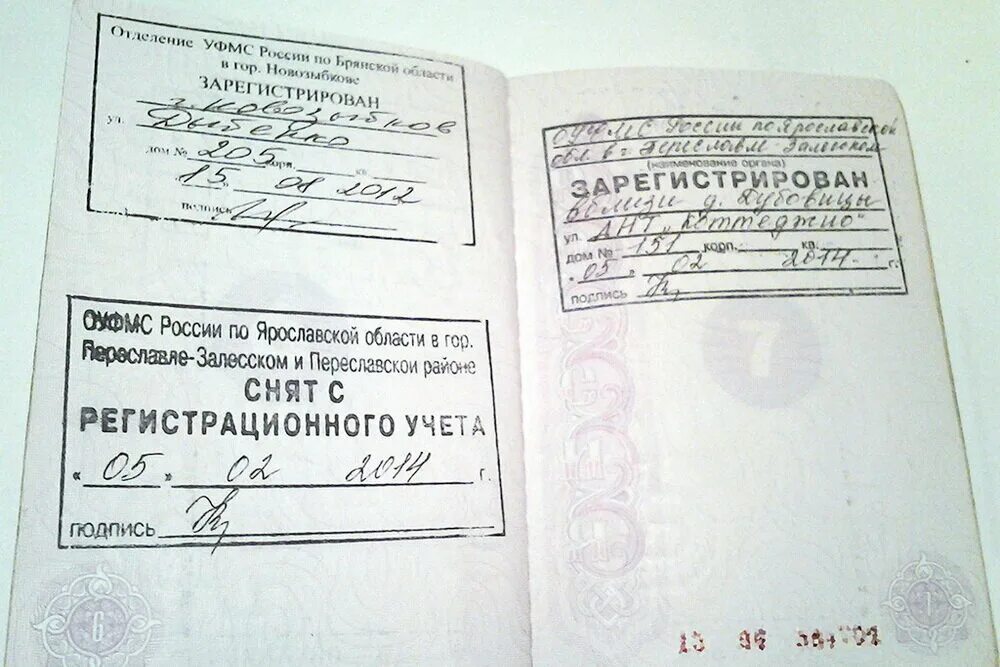 Отделение УФМС России по Брянской области
в гор. Новозыбкове
ЗАРЕГИСТРИРОВАН
г. Новозыбков
ул. Дыбенко
дом № 205 корп. кв.
15 08 2012
подпись
ОУФМС России по Ярославской области в гор.
Переславле-Залесском и Переславском районе
СНЯТ С
РЕГИСТРАЦИОННОГО УЧЕТА
« 05 » 02 2014 г.
ПОДПИСЬ
6
ОУФМС России по Ярославской
обл. в г. Переславле-Залесском
(наименование органа)
ЗАРЕГИСТРИРОВАН
вблизи д. Дубовицы
ул. ДНТ „Коттеджио"
дом № 151 корп. кв.
« 05 » 02 2014 г.
подпись
7
7